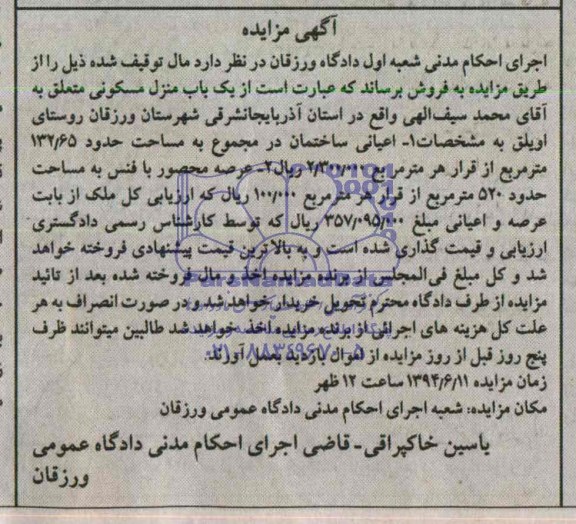 آگهی مزایده
اجرای احکام مدنی شعبه اول دادگاه ورزقان در نظر دارد مال توقیف شده ذیل را از
طریق مزایده به فروش برساند که عبارت است از یک باب منزل مسکونی متعلق به
آقای محمد سیف‌الهی واقع در استان آذربایجانشرقی شهرستان ورزقان روستای
اویلق به مشخصات۱- اعیانی ساختمان در مجموع به مساحت حدود ۱۳۲/۶۵
مترمربع از قرار هر مترمربع ۲/۳۰۰/۰۰۰ ریال۲- عرصه محصور با فنس به مساحت
حدود ۵۲۰ مترمربع از قرار هر مترمربع ۱۰۰/۰۰۰ ریال که ارزیابی کل ملک از بابت
عرصه و اعیانی مبلغ ۳۵۷/۰۹۵/۰۰۰ ریال که توسط کارشناس رسمی دادگستری
ارزیابی و قیمت گذاری شده است و به بالاترین قیمت پیشنهادی فروخته خواهد
شد و کل مبلغ فی‌المجلس از برنده مزایده اخذ و مال فروخته شده بعد از تائید
مزایده از طرف دادگاه محترم تحویل خریدار خواهد شد و در صورت انصراف به هر
علت کل هزینه های اجرائی از برنده مزایده اخذ خواهد شد طالبین میتوانند ظرف
پنج روز قبل از روز مزایده از اموال بازدید بعمل آورند.
زمان مزایده ۱۳۹۴/۶/۱۱ ساعت ۱۲ ظهر
مکان مزایده: شعبه اجرای احکام مدنی دادگاه عمومی ورزقان
یاسین خاکپراقی- قاضی اجرای احکام مدنی دادگاه عمومی
ورزقان
ParsNamadData